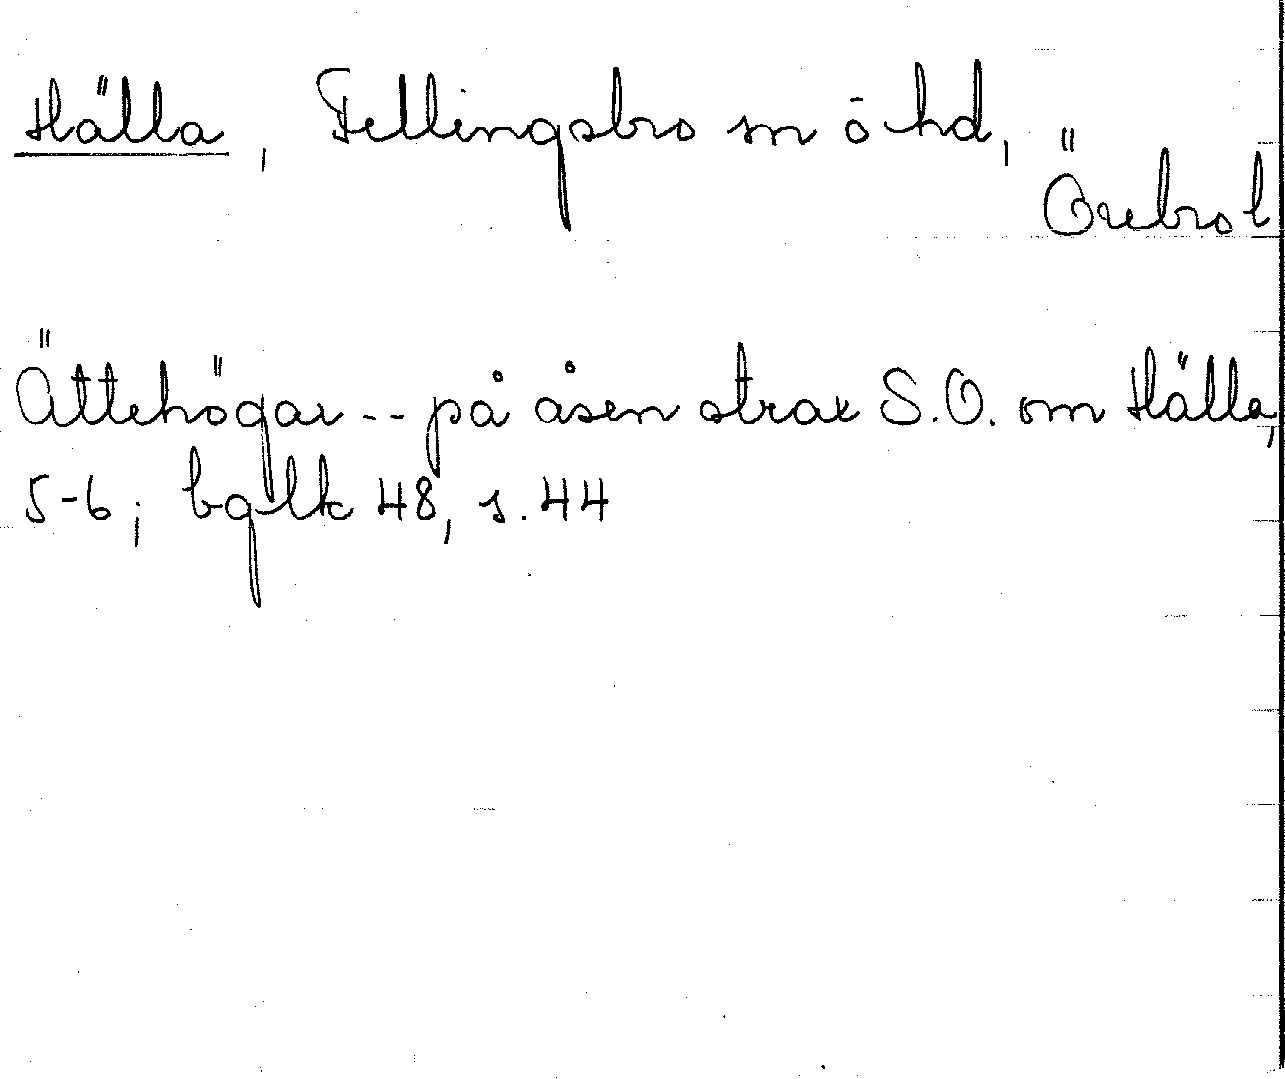 Hälla, Fellingsbro sn o hd,
Örebro l
Ättehögar -- på åsen strax S.O. om Hälla,
5-6; bglk 48, s. 44